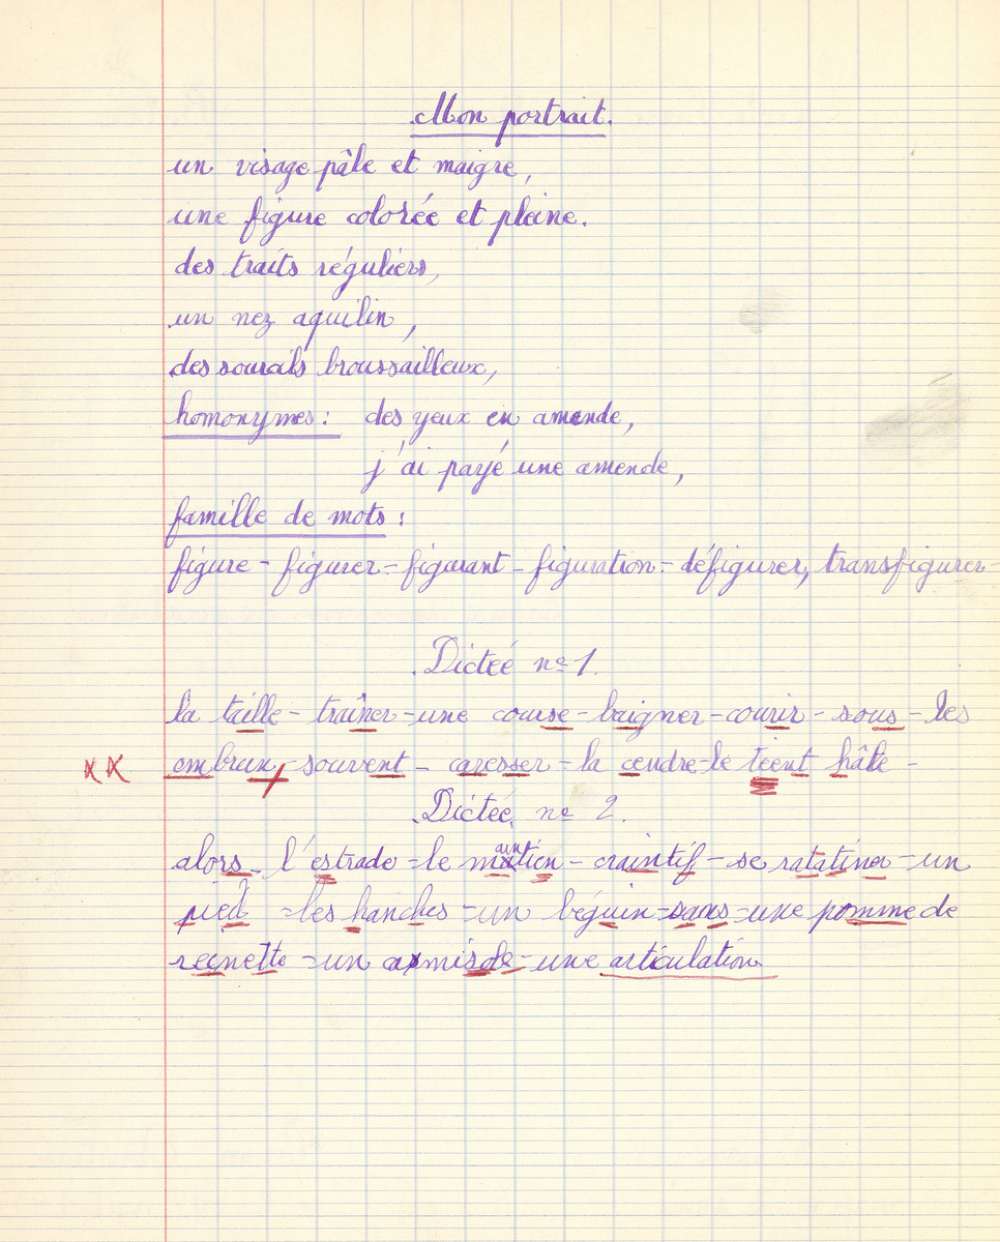 Mon portrait.
un visage pâle et maigre,
une figure colorée et pleine.
des traits réguliers,
un nez aquilin,
des sourcils broussailleux,
homonymes : des yeux en amende,
j'ai payé une amende,
famille de mots :
figure - figurer - figurant - figuration - défigurer, transfigurer -
Dictée nº 1.
la taille - traîner - une course - baigner - courir - sous - les
embrun, - souvent - caresser - la cendre - le teint hâlé -
Dictée nº 2.
alors - l'estrade - le maintien - craintif - se ratatiner - un
pied - les hanches - un béguin - sans - une pomme de
reinette - un armis de - une articulation